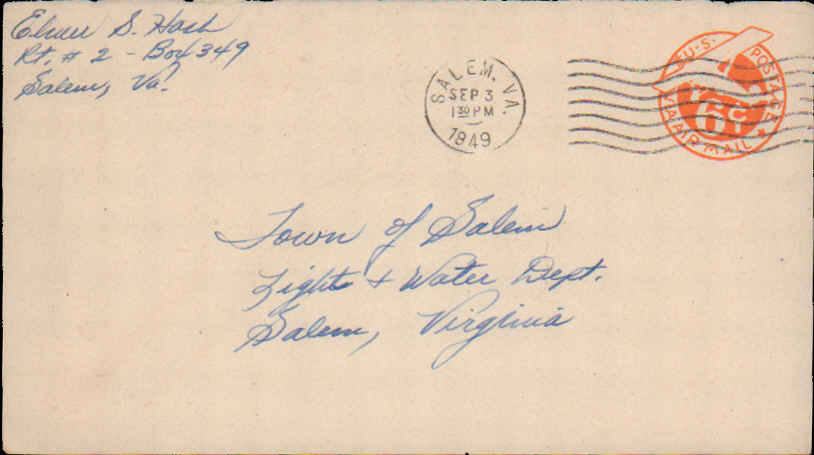 Elmer S. Hash
Rt. # 2 - Box 349
Salem, Va.
SALEM, VA.
SEP 3
1 30 PM
1949
U.S. POSTAGE
6C
VIA AIR MAIL
Town of Salem
Light & Water Dept.
Salem, Virginia